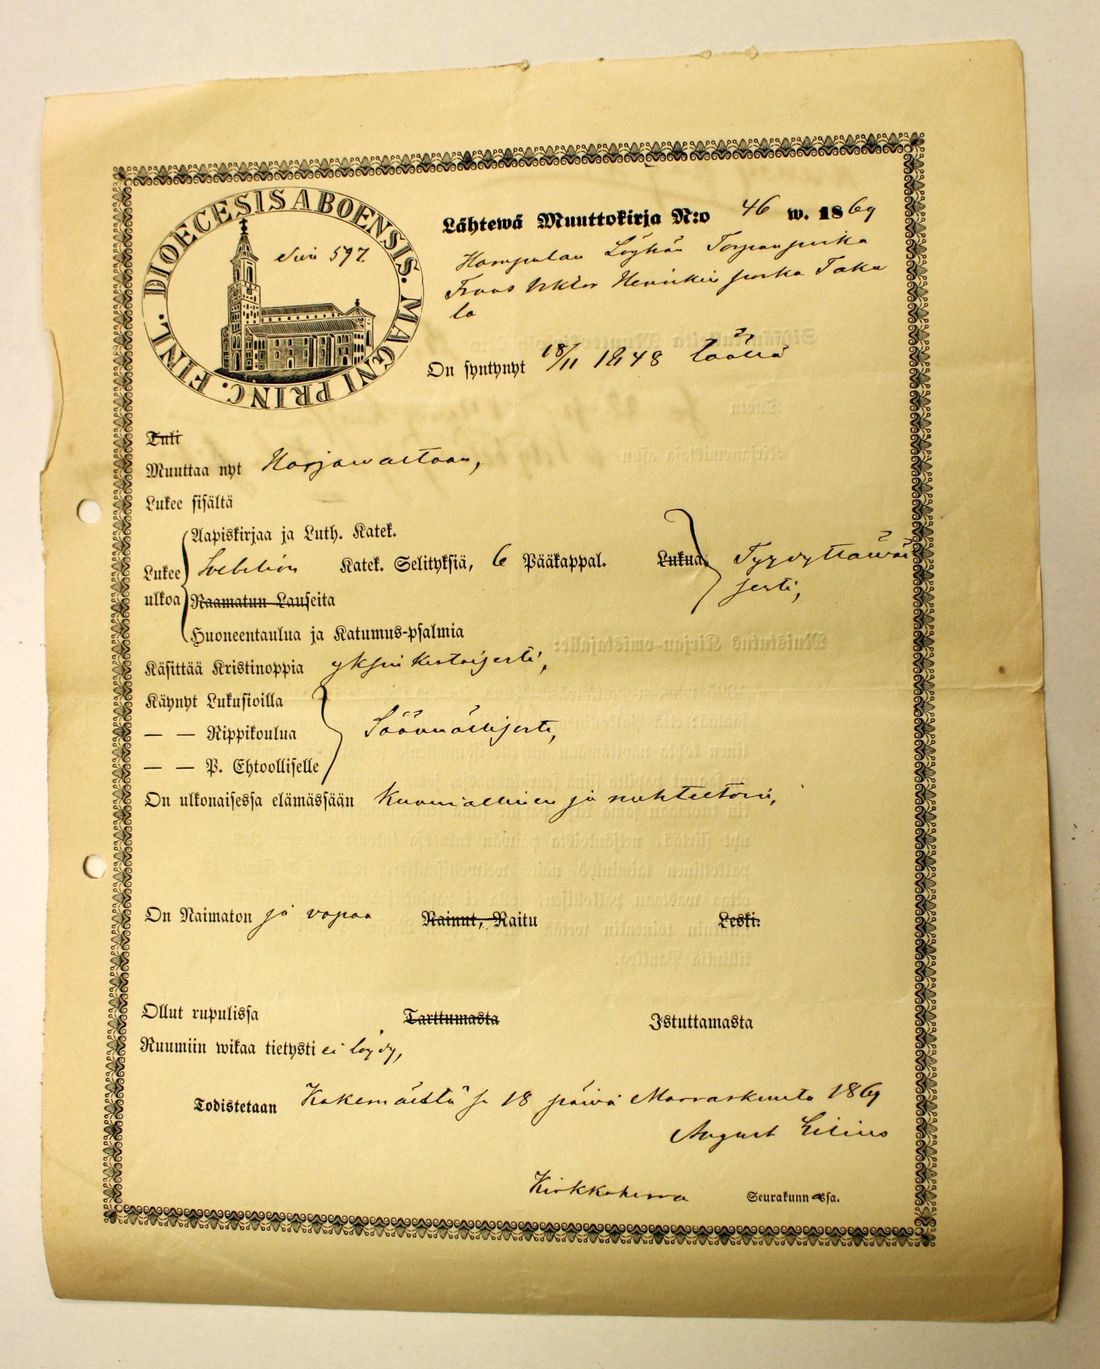 DIOECESIS ABOENSIS. MAGNI PRINC. FINL.
Sivu 597
Lähtewä Muuttokirja N:o 46 w. 1869
Torpanpoika
Frans Viktor Henrikin poika Taka
la
On syntynyt 18/11 1848 täällä
Tuli
Muuttaa nyt Harjawaltaan,
Lukee sisältä
Aapiskirjaa ja Luth. Katek.
Lukee ulkoa Katek. Selityksiä, 6 Pääkappal. Lukua, Tyydyttäwäi
sesti,
Raamatun Lauseita
Huoneentaulua ja Katumus-psalmia
Käsittää Kristinoppia yksinkertaisesti,
Käynyt Lukusioilla
— — Rippikoulua Säännöllisesti,
— — P. Ehtoolliselle
On ulkonaisessa elämässään Kunniallinen ja nuhteetoin,
On Naimaton ja vapaa Nainut, Naitu Leski.
Ollut rupulissa Tarttumasta Istuttamasta
Ruumiin wikaa tietysti ei löydy,
Todistetaan Kokemäeltä 18 päivä Marraskuuta 1869
August Lilius
Kirkkoherra Seurakunnassa.